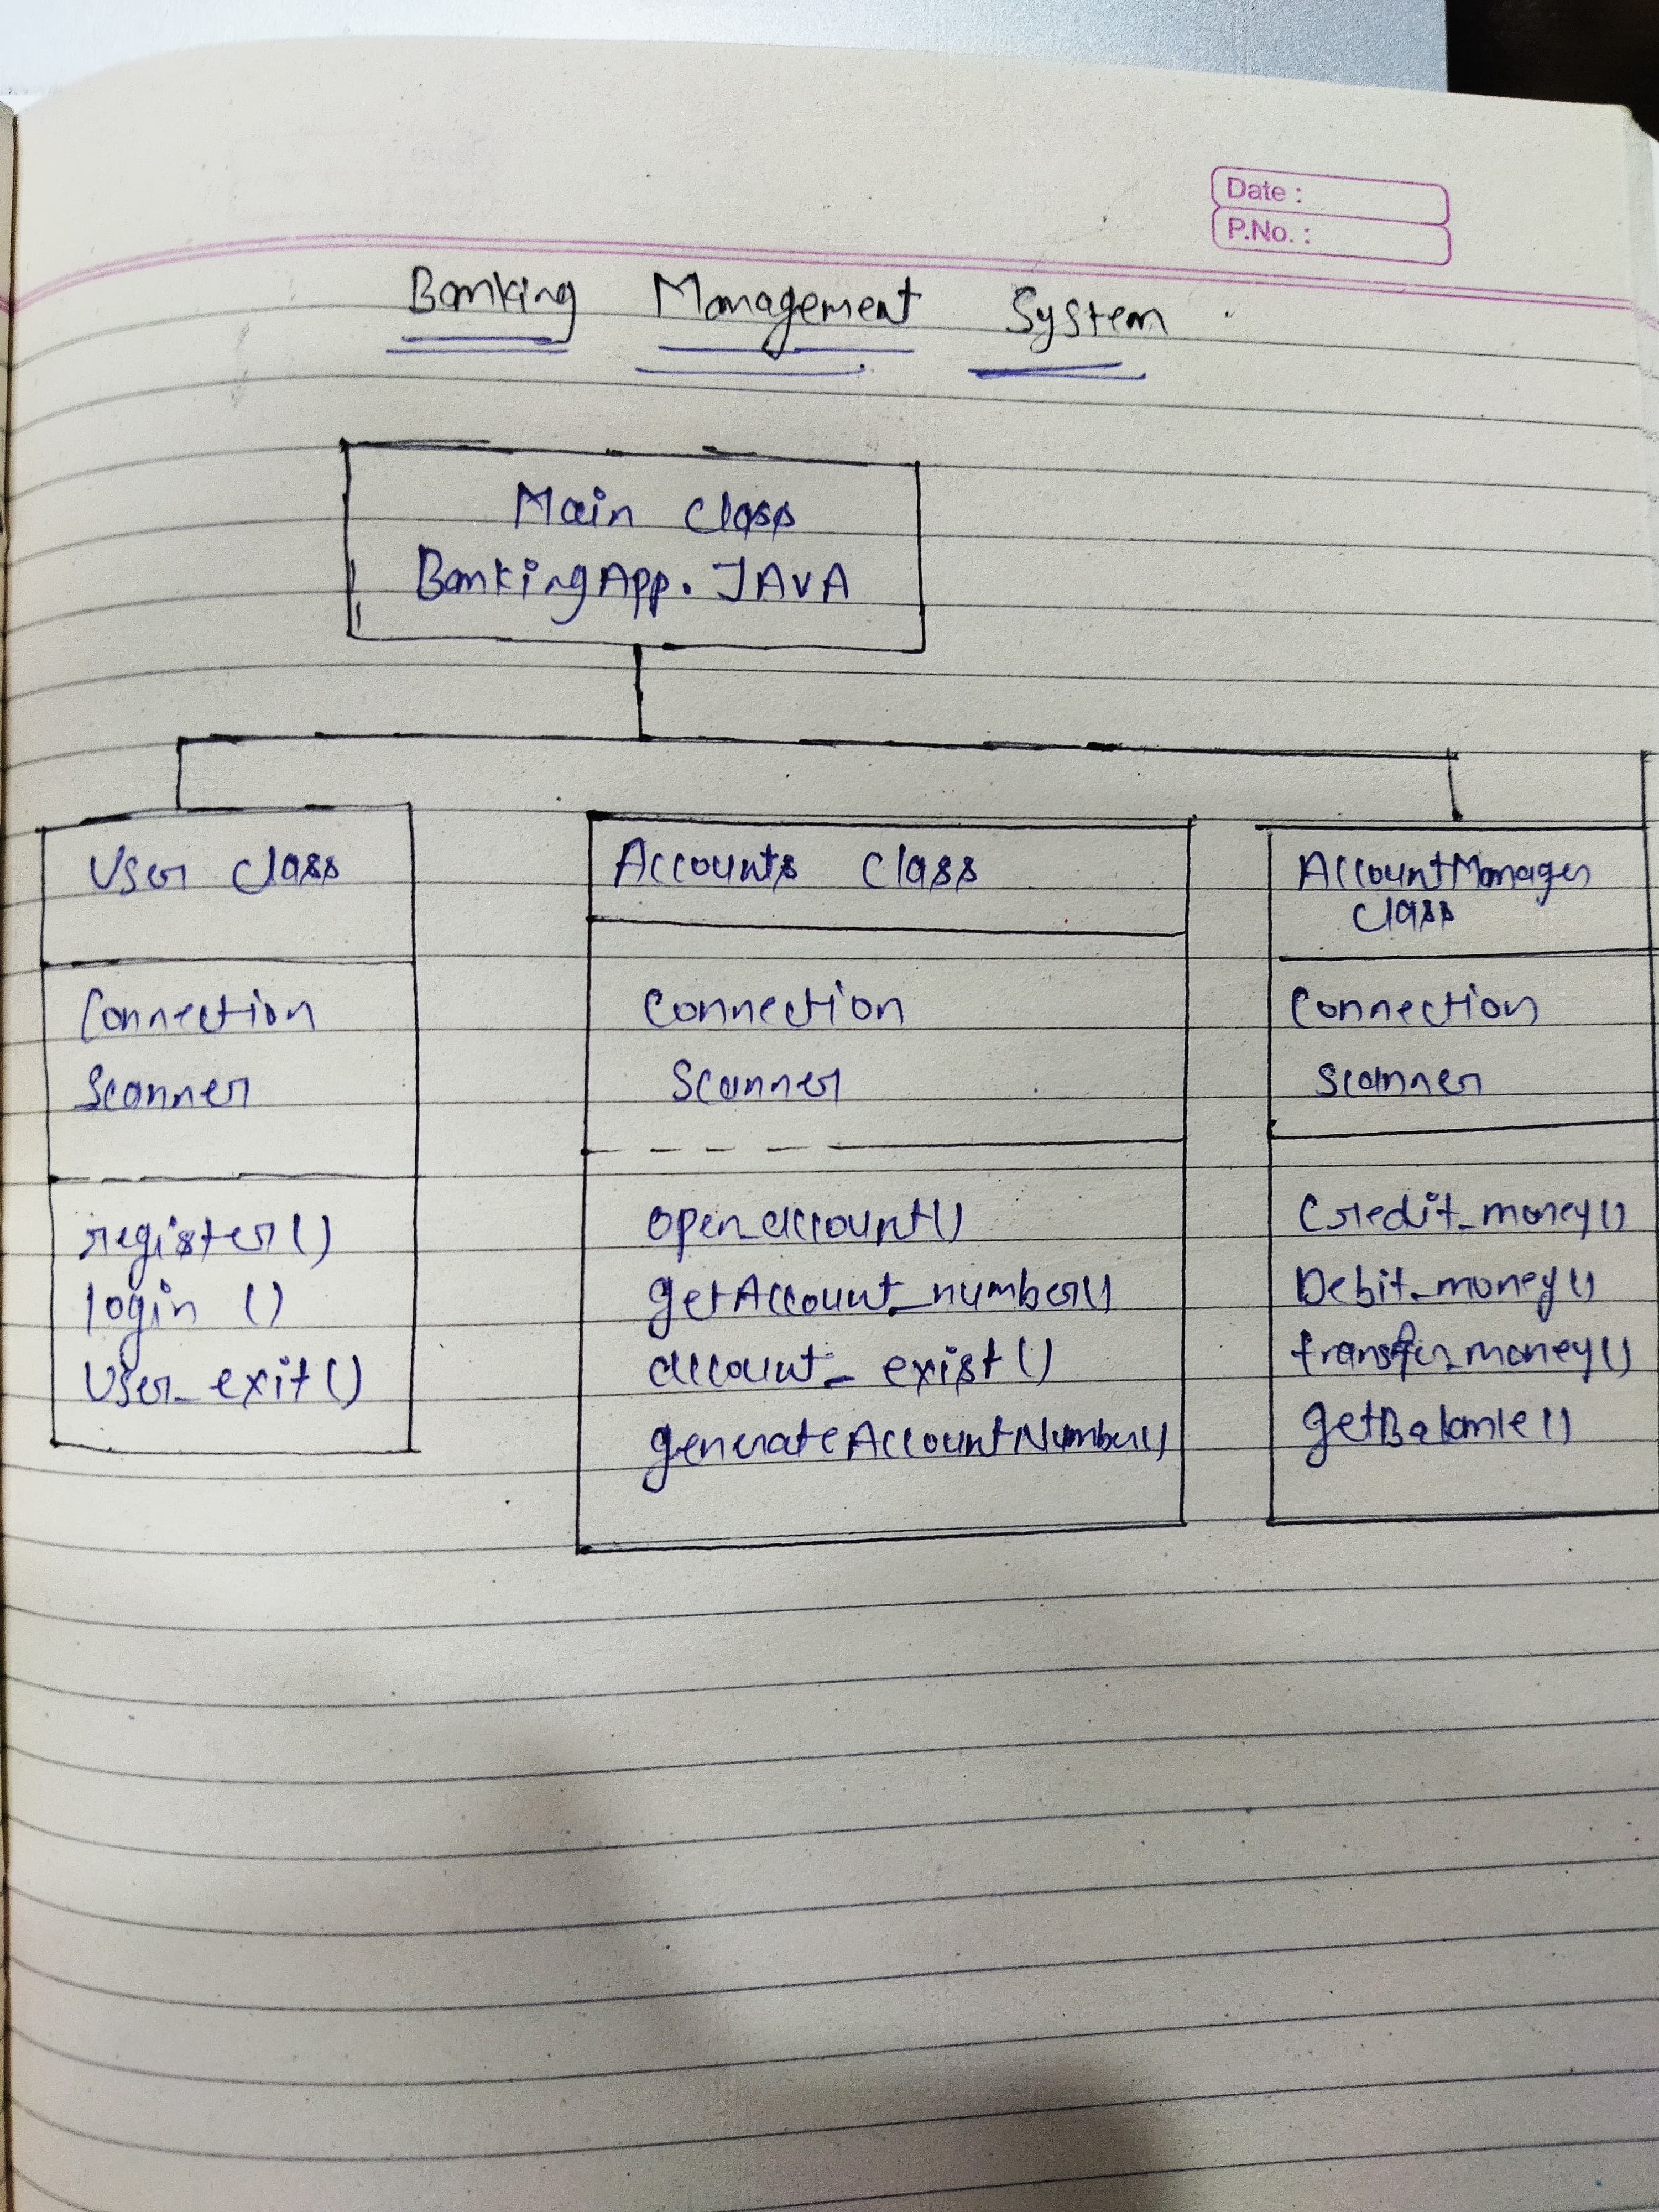 Date :
P.No. :
Banking Management System
Main Class
BankingApp. JAVA
User class
Connection
Scanner
register()
login ()
User_exit()
Accounts Class
Connection
Scanner
open_account()
getAccount_number()
account_exist()
generateAccountNumber()
AccountManager
class
Connection
Scanner
Credit_money()
Debit_money()
transfer_money()
getBalance()